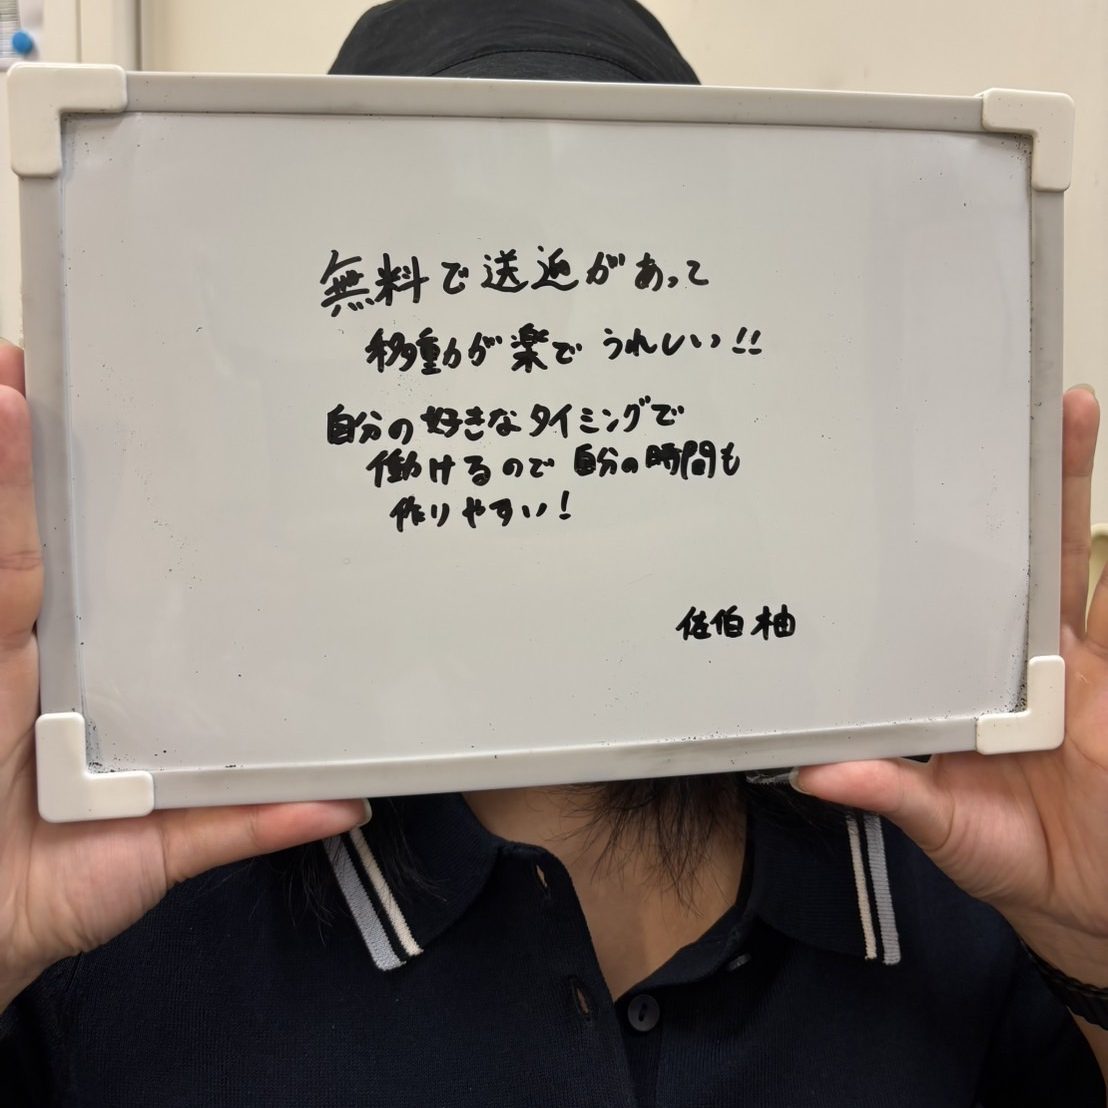 無料で送迎があって
移動が楽でうれしい!!
自分の好きなタイミングで
働けるので自分の時間も
作りやすい!
佐伯 柚